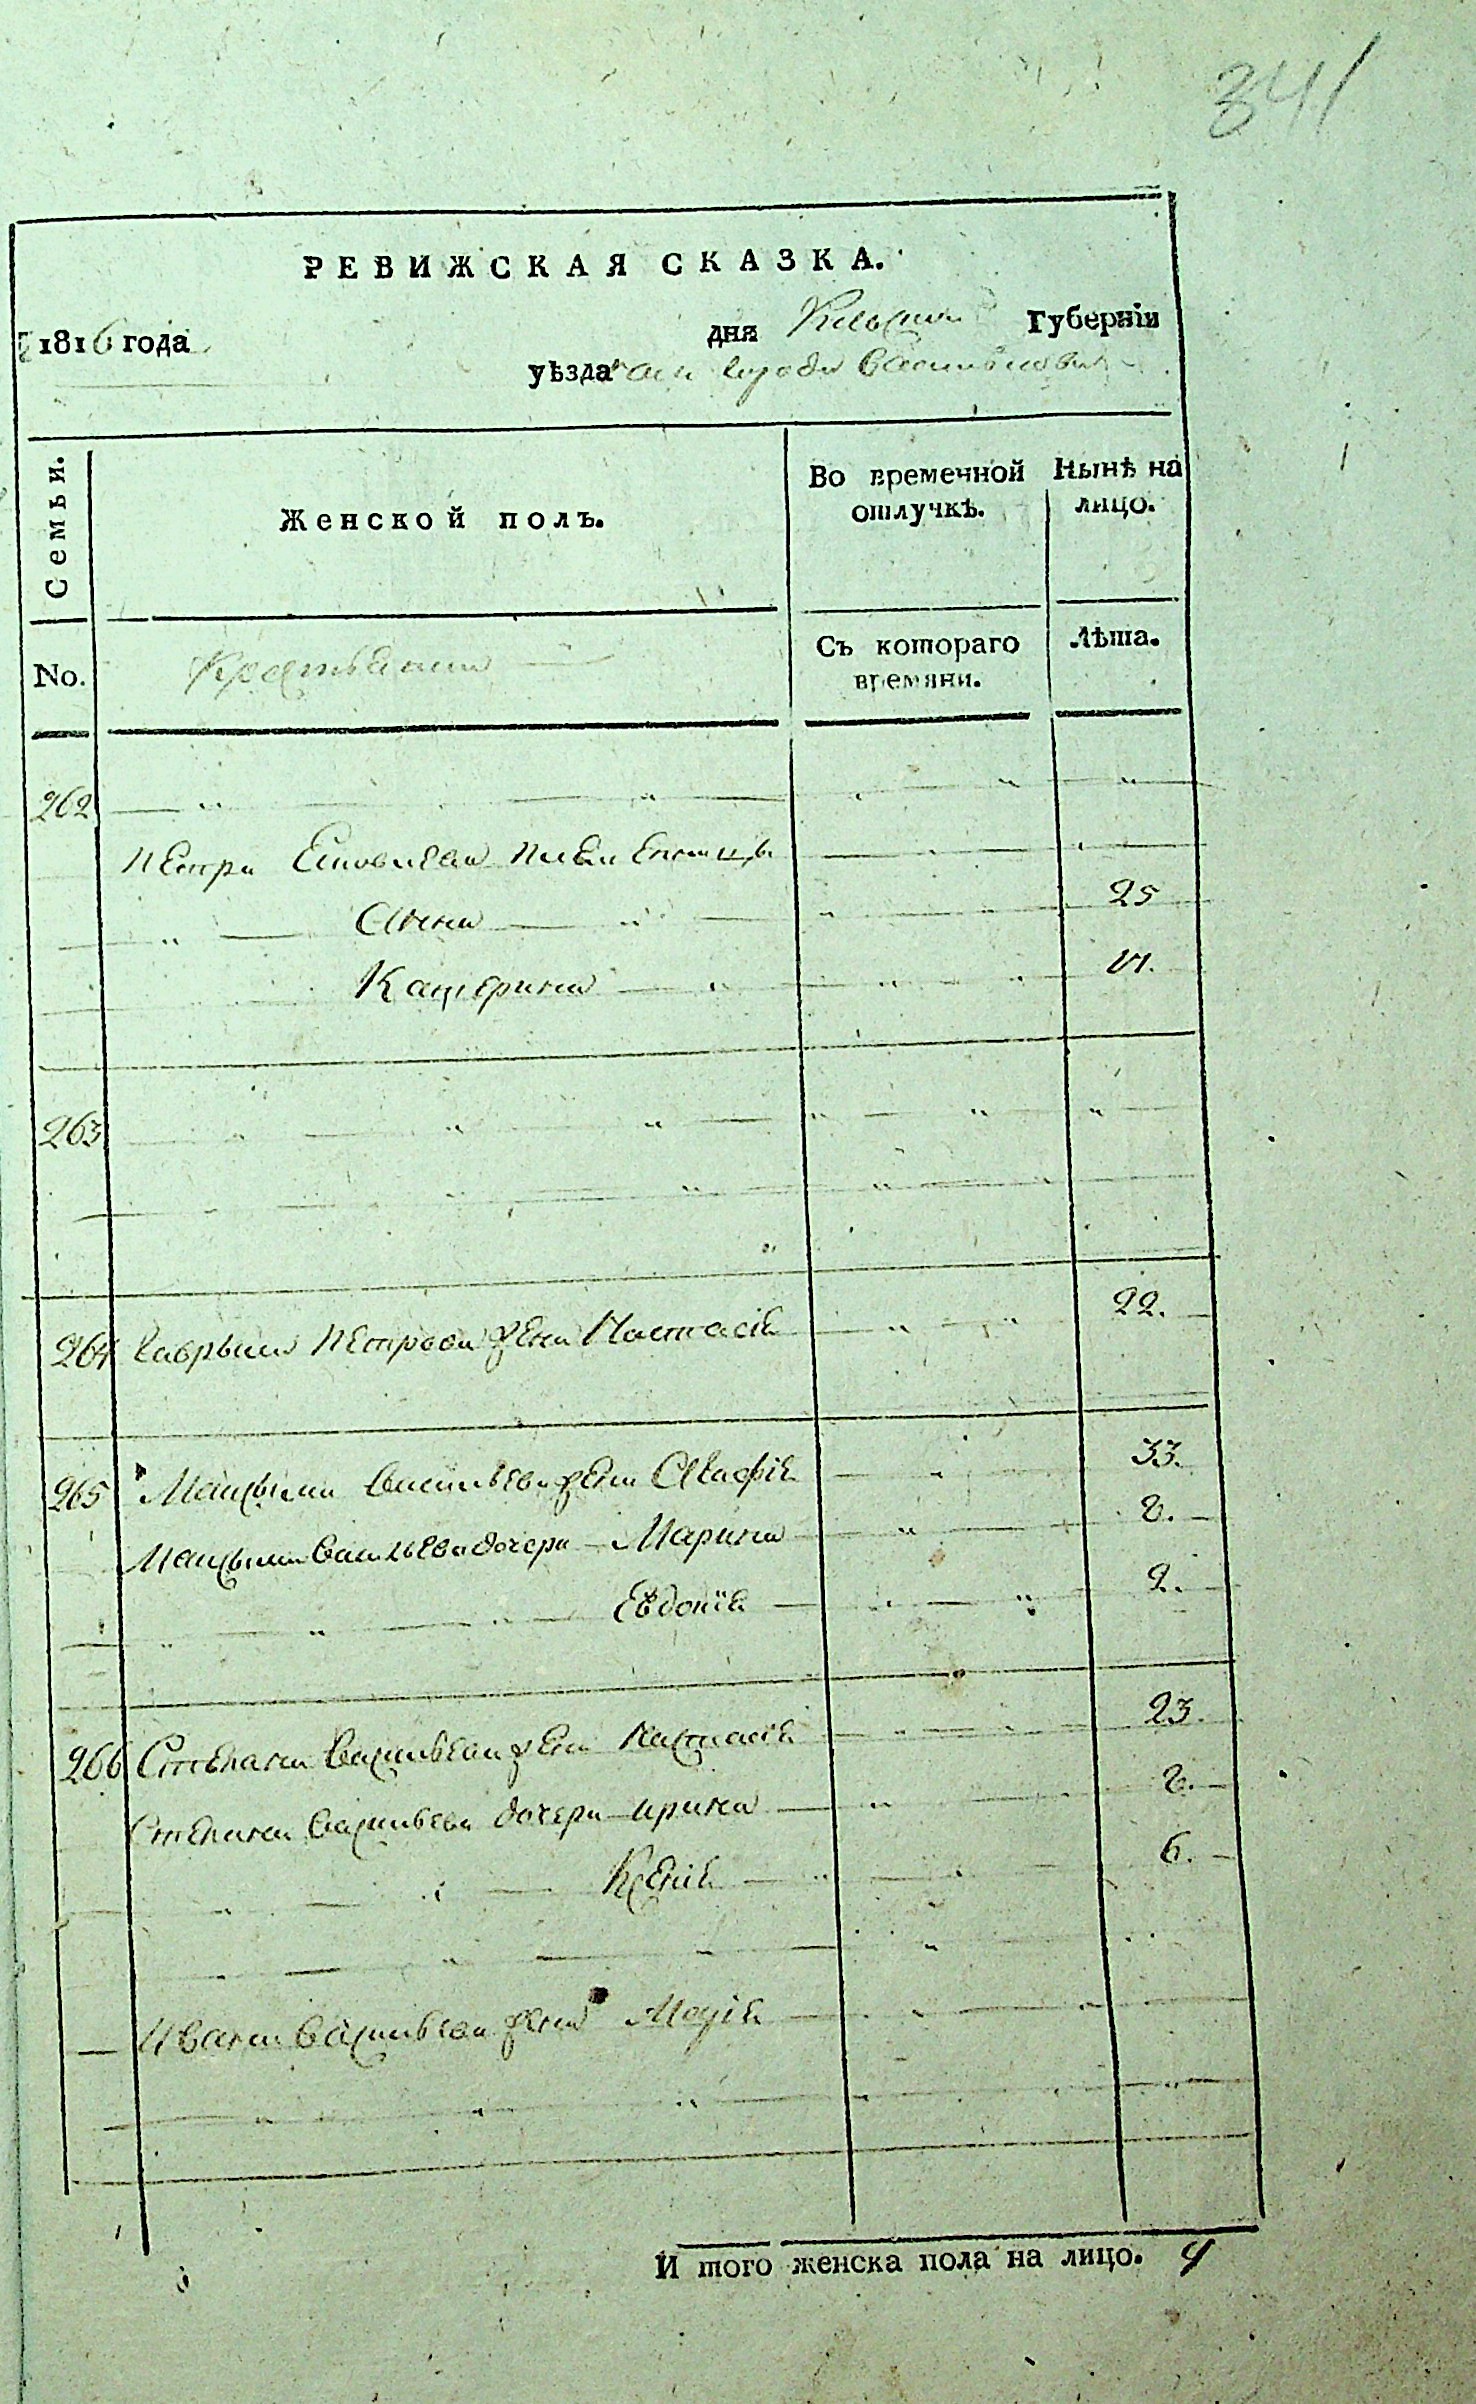 341
РЕВИЖСКАЯ СКАЗКА.
1816 года дня Губерніи
уѣзда города Василькова
Семьи. Женской полъ. Во временной отлучкѣ. Нынѣ на лицо.
No. Съ котораго времяни. Лѣта.
262
Петра
Анна 25
Катерина
263
264 Гаврыла Петрова жена Настасія 22.
265 Максыма Васильева жена Агафія 33.
Максыма Васильева дочери Марина
Евдокія 2.
266 Степана Васильева жена Настасія 23.
Степана Васильева дочери Ирина
Ксенія 6.
Ивана Васильева жена
И того женска пола на лицо.